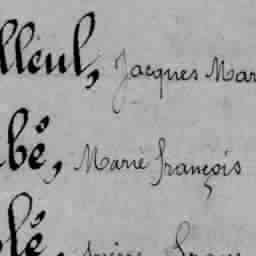 lleul, Jacques Mar
bé, Marie François
lé,